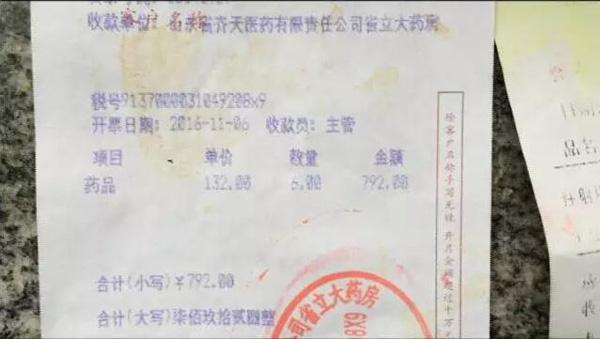 收款单位: 山东省齐天医药有限责任公司省立大药房
税号9137000031049208x9
开票日期: 2016-11-06 收款员: 主管
项目 单价 数量 金额
药品 132.00 6.00 792.00
合计(小写)¥792.00
合计(大写)柒佰玖拾贰圆整
除客户名称手写无效 开具金额超过十万元
公司省立大药房
品名